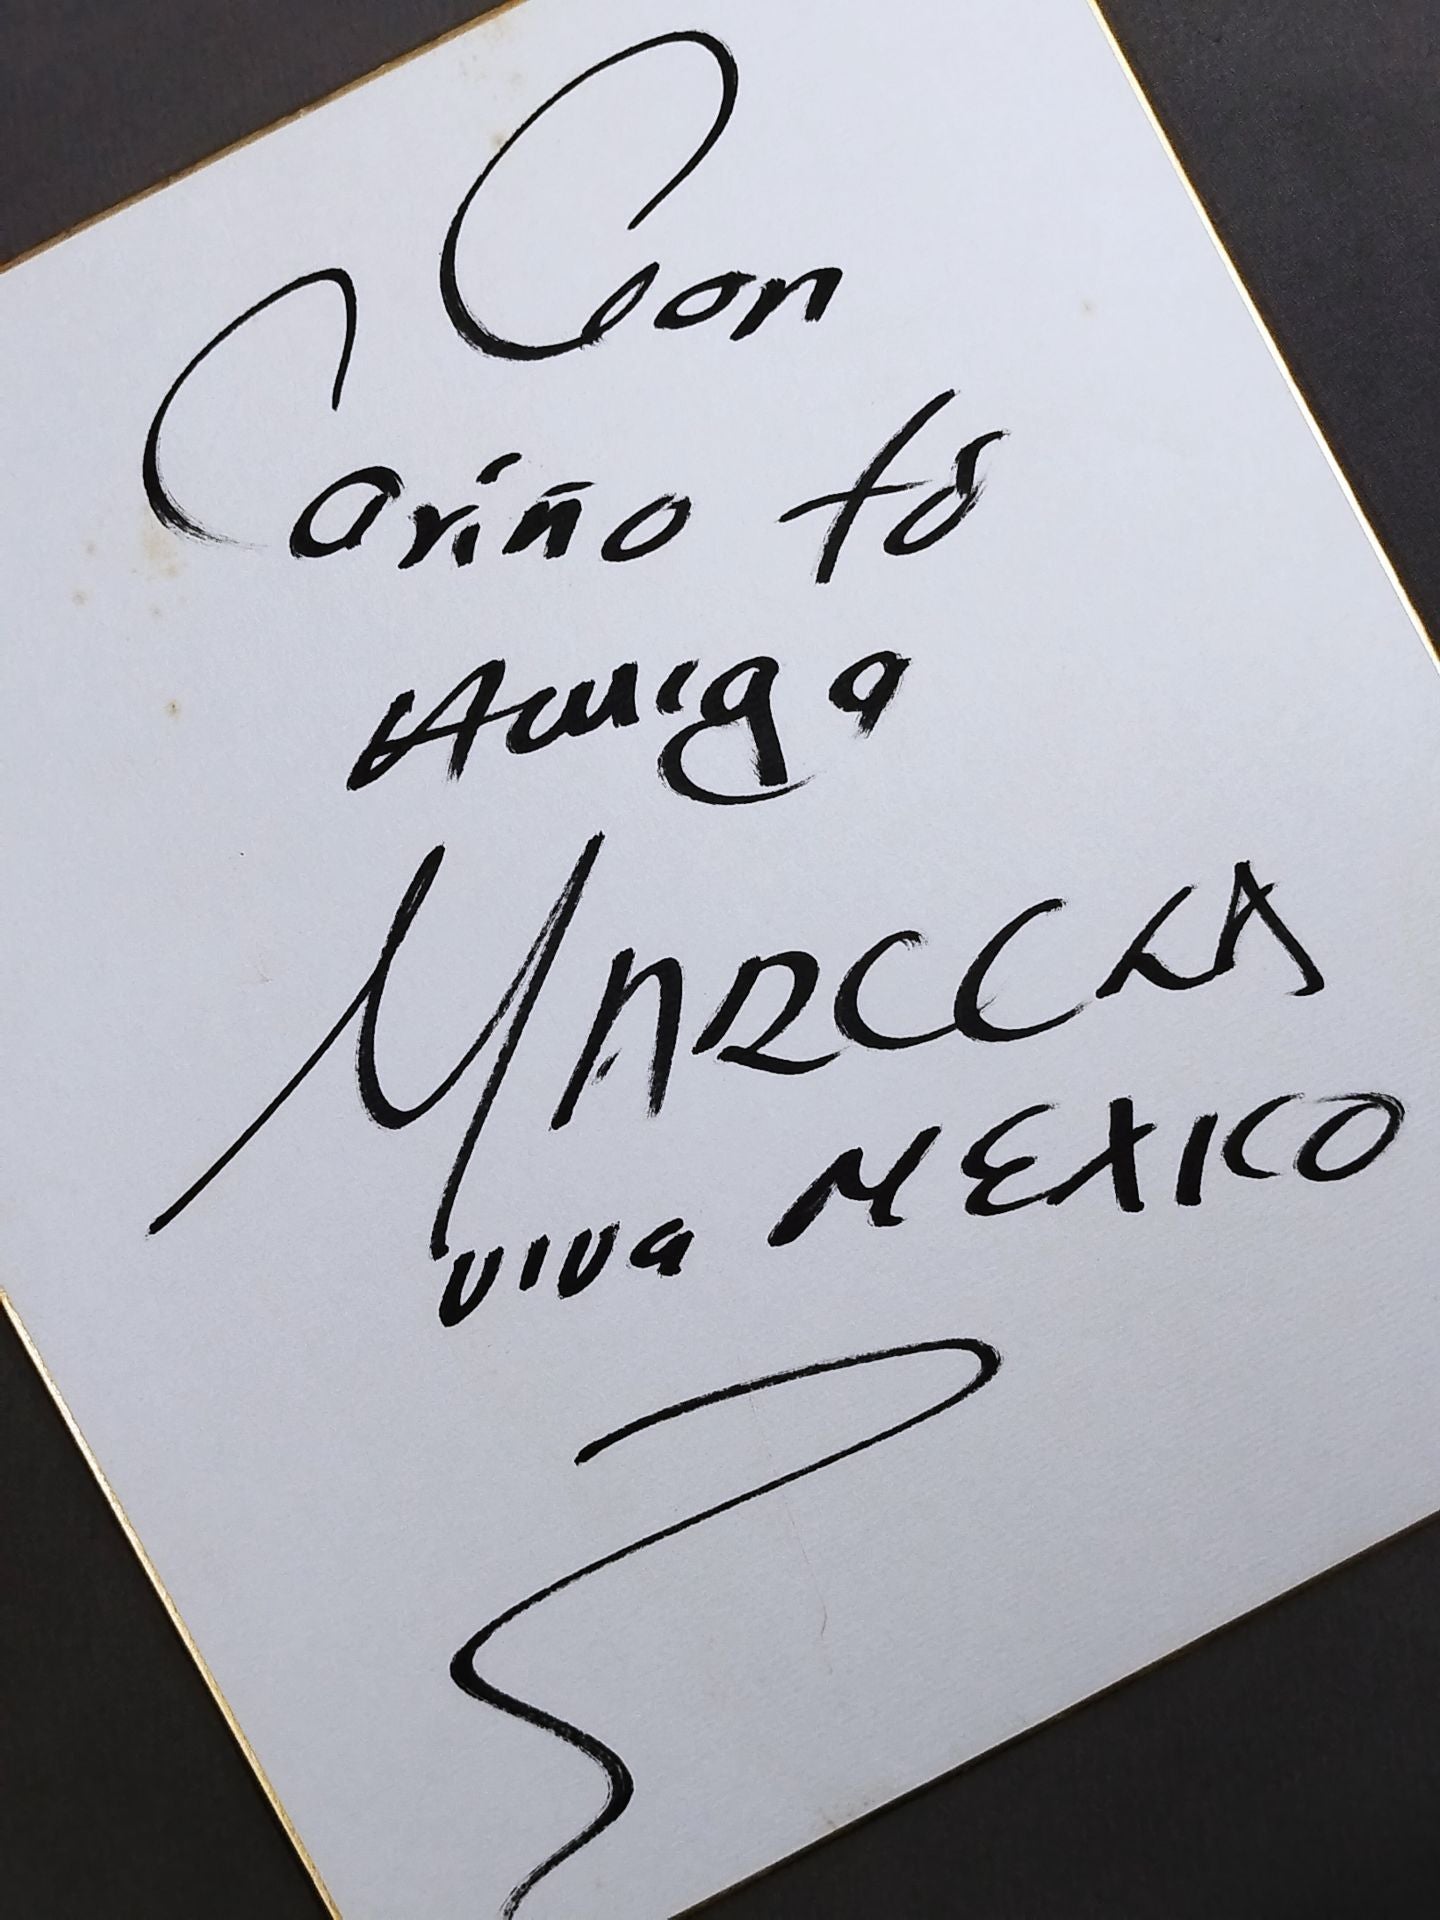 Con
Cariño tú
Amiga
MARCELA
viva MEXICO